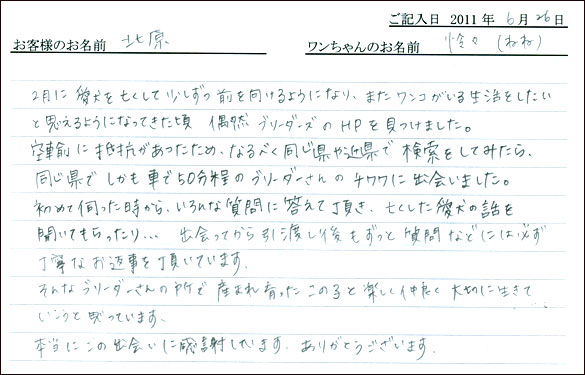 ご記入日 2011年 6月 26日
お客様のお名前 北原 ワンちゃんのお名前 怜々(ねね)
2月に愛犬を亡くして少しずつ前を向けるようになり、またワンコがいる生活をしたい
と思えるようになってきた頃 偶然ブリーダーズのHPを見つけました。
空輸に抵抗があったため、なるべく同じ県や近県で検索をしてみたら、
同じ県でしかも車で50分程のブリーダーさんのチワワに出会いました。
初めて伺った時から、いろんな質問に答えて頂き、亡くした愛犬の話を
聞いてもらったり… 出会ってから引渡し後もずっと質問などには必ず
丁寧なお返事を頂いています。
そんなブリーダーさんの所で産まれ育ったこの子と楽しく仲良く大切に生きて
いこうと思っています。
本当にこの出会いに感謝しています。ありがとうございます。